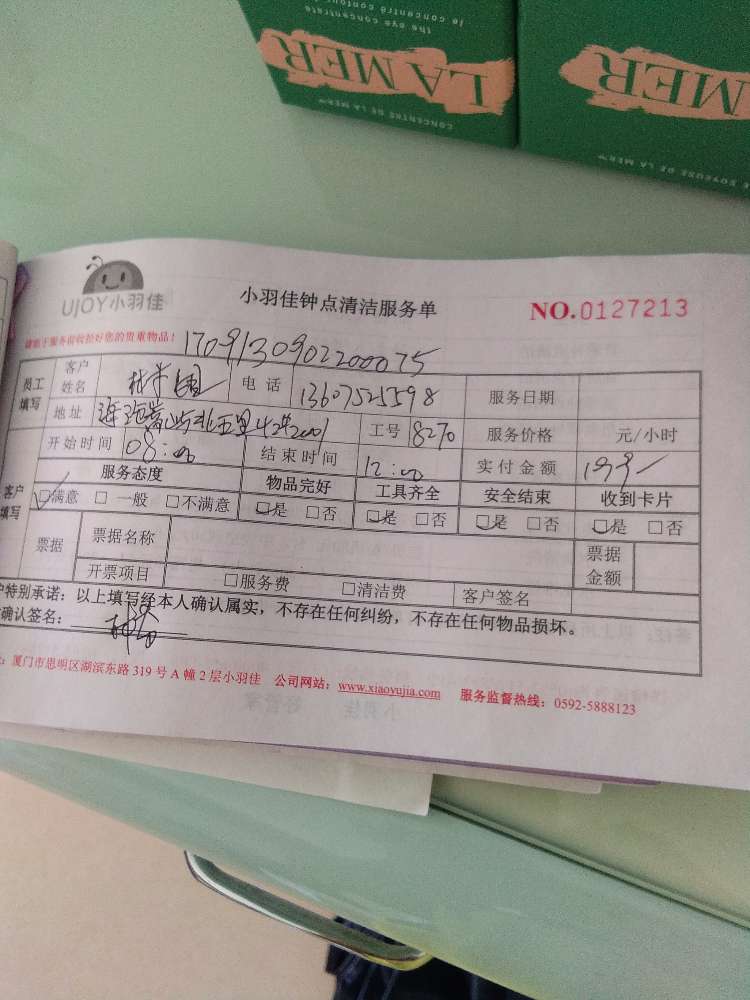 the eye concentrate
LA MER
CONCENTRÉ DE LA MER™
LA MER
UJOY小羽佳
小羽佳钟点清洁服务单
NO.0127213
请您于服务前收拾好您的贵重物品!
1709130902200075
员工填写
客户姓名
电话 13607525598
服务日期
地址
工号 8270
服务价格 元/小时
开始时间 08:00
结束时间 12:00
实付金额
客户填写
服务态度 物品完好 工具齐全 安全结束 收到卡片
□满意 □一般 □不满意 □是 □否 □是 □否 □是 □否 □是 □否
票据 票据名称 票据金额
开票项目 □服务费 □清洁费 客户签名
户特别承诺:以上填写经本人确认属实,不存在任何纠纷,不存在任何物品损坏。
确认签名:
厦门市思明区湖滨东路319号A幢2层小羽佳 公司网站:www.xiaoyujia.com 服务监督热线:0592-5888123